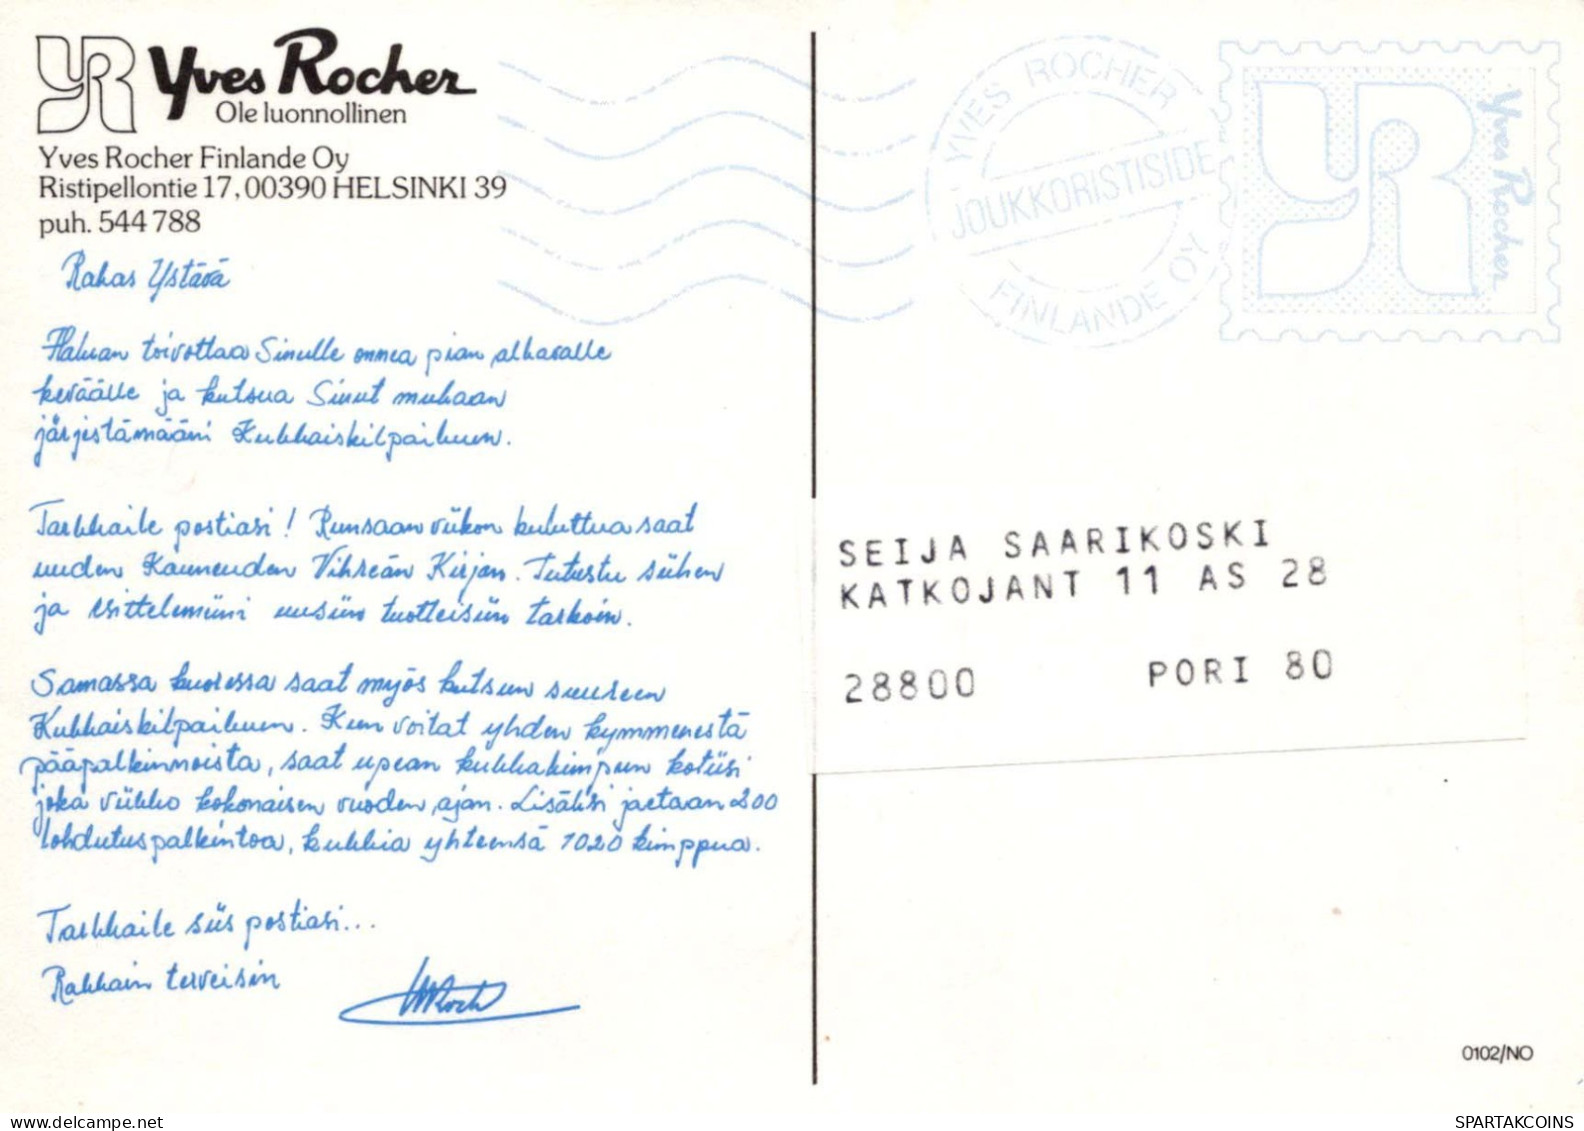 YR Yves Rocher
Ole luonnollinen
Yves Rocher Finlande Oy
Ristipellontie 17, 00390 HELSINKI 39
puh. 544 788
Rakas Ystävä
Haluan toivottaa Sinulle onnea pian alkavalle
keväälle ja kutsua Sinut mukaan
järjestämääni Kukkaiskilpailuun.
Tarkkaile postiasi! Runsaan viikon kuluttua saat
uuden Kauneuden Vihreän Kirjan. Tutustu siihen
ja esittelemiini uusiin tuotteisiin tarkoin.
Samassa kuoressa saat myös kutsun suureen
Kukkaiskilpailuun. Kun voitat yhden kymmenestä
pääpalkinnoista, saat upean kukkakimpun kotiisi
joka viikko kokonaisen vuoden ajan. Lisäksi jaetaan 200
lohdutuspalkintoa, kukkia yhteensä 1020 kimppua.
Tarkkaile siis postiasi...
Rakkain terveisin
YVES ROCHER
JOUKKORISTISIDE
FINLANDE OY
YR Yves Rocher
SEIJA SAARIKOSKI
KATKOJANT 11 AS 28
28800 PORI 80
0102/NO
delcampe.net
SPARTAKCOINS